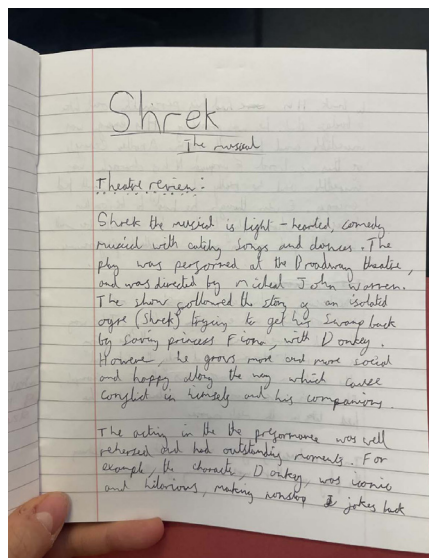 Shrek
The musical
Theatre review:
Shrek the musical is light-hearted, comedy
musical with catchy songs and dances. The
play was performed at the Broadway theatre,
and was directed by micheal John Warren.
The show followed the story of an isolated
ogre (Shrek) trying to get his Swamp back
by saving princess Fiona, with Donkey.
However, he grows more and more social
and happy along the way which cause
conflict in himself and his companions.
The acting in the the preformance was well
rehersed and had outstanding moments. For
example, the character, Donkey, was iconic
and hilarious, making nonstop jokes back